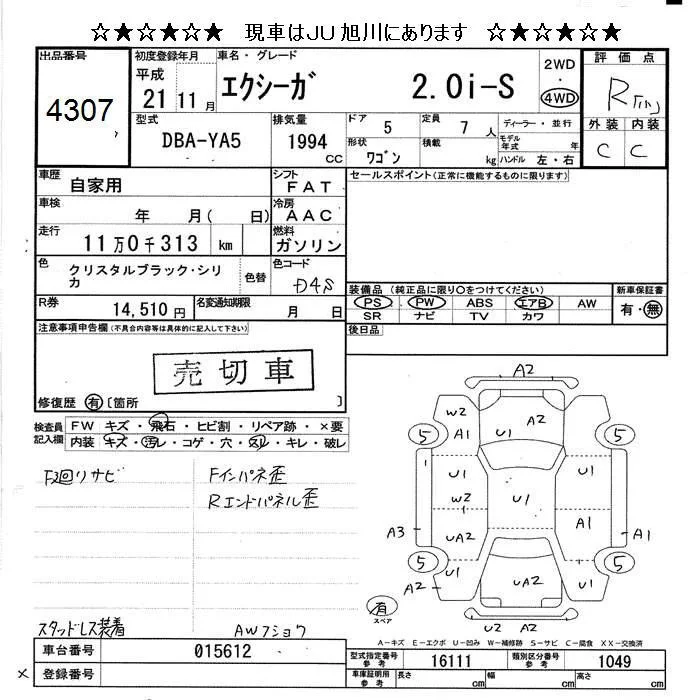 ☆★☆★☆★ 現車はJU旭川にあります ☆★☆★☆★
出品番号
4307
初度登録年月
平成
21 11月
車名・グレード
エクシーガ 2.0i-S
2WD
・
4WD
評価点
R
外装 内装
C C
型式
DBA-YA5
排気量
1994
CC
ドア
5
定員
7人
ディーラー・並行
形状
ワゴン
積載
kg
モデル年式 年
ハンドル 左・右
車歴
自家用
シフト
FAT
セールスポイント(正常に機能するものに限ります)
車検
年 月( 日)
冷房
AAC
走行
11万0千313 km
燃料
ガソリン
色
クリスタルブラック・シリカ
色替
色コード
D4S
装備品 (純正品に限り○をつけてください)
新車保証書
PS PW ABS エアB AW
SR ナビ TV カワ
有・無
R券
14,510円
名変通知期限
月 日
後日品
注意事項申告欄(不具合内容等は具体的に記入して下さい)
売切車
修復歴 有〔箇所 〕
検査員記入欄
FW キズ・飛石・ヒビ割・リペア跡・×要
内装 キズ・汚レ・コゲ・穴・スレ・キレ・破レ
F廻りサビ
Fインパネ歪
Rエンドパネル歪
A2
W2
A2
5
A1
U1
5
U1
U1
W2
U1
A3
UA2
A1
A1
5
U1
UA2
U1
5
A2
A2
有
スペア
U2 A2
スタッドレス装着
AWフショク
A-キズ E-エクボ U-凹み W-補修跡 S-サビ C-腐食 XX-交換済
車台番号
015612
型式指定番号
参考
16111
類別区分番号
参考
1049
×
登録番号
車庫証明用
参考
長さ cm
幅 cm
高さ cm